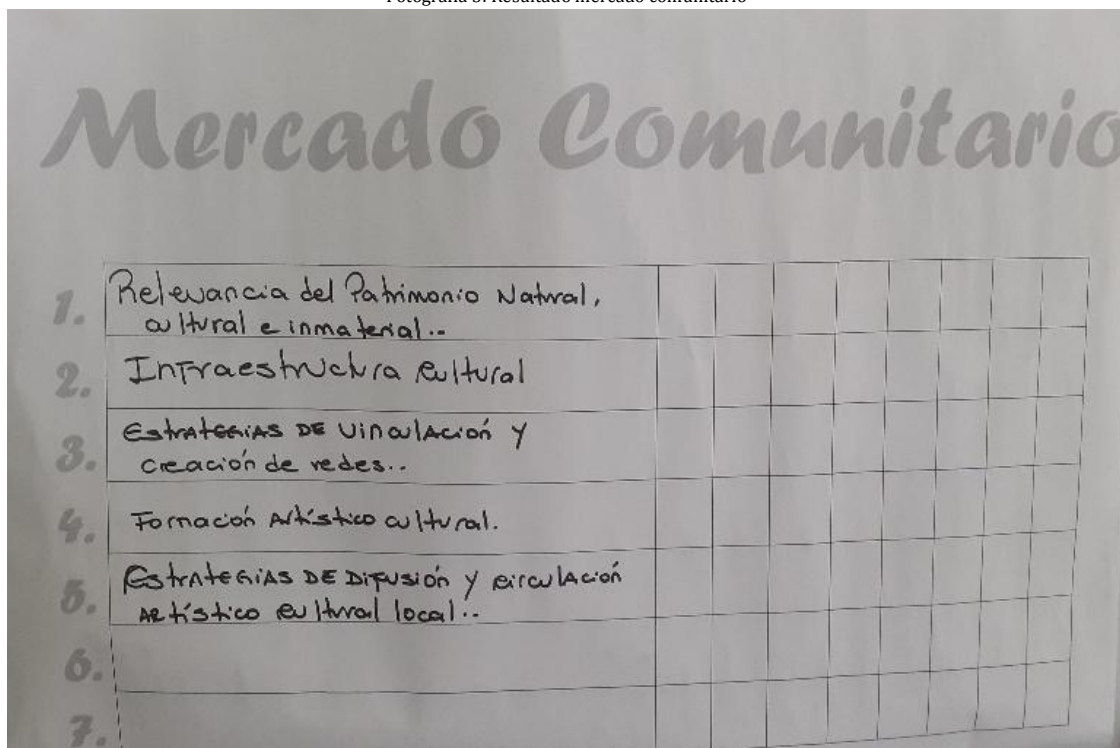 Fotografía 5. Resultado mercado comunitario
Mercado Comunitario
1. Relevancia del Patrimonio Natural,
cultural e inmaterial..
2. Infraestructura cultural
3. Estrategias de vinculación y
creación de redes..
4. Formación Artístico cultural.
5. Estrategias de Difusión y circulación
Artístico cultural local..
6.
7.